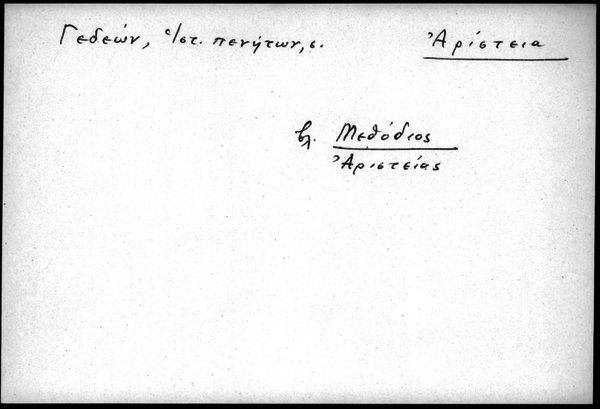 Γεδεών, Ἱστ. πενήτων, σ. Ἀρίστεια
βλ. Μεθόδιος
Ἀριστείας